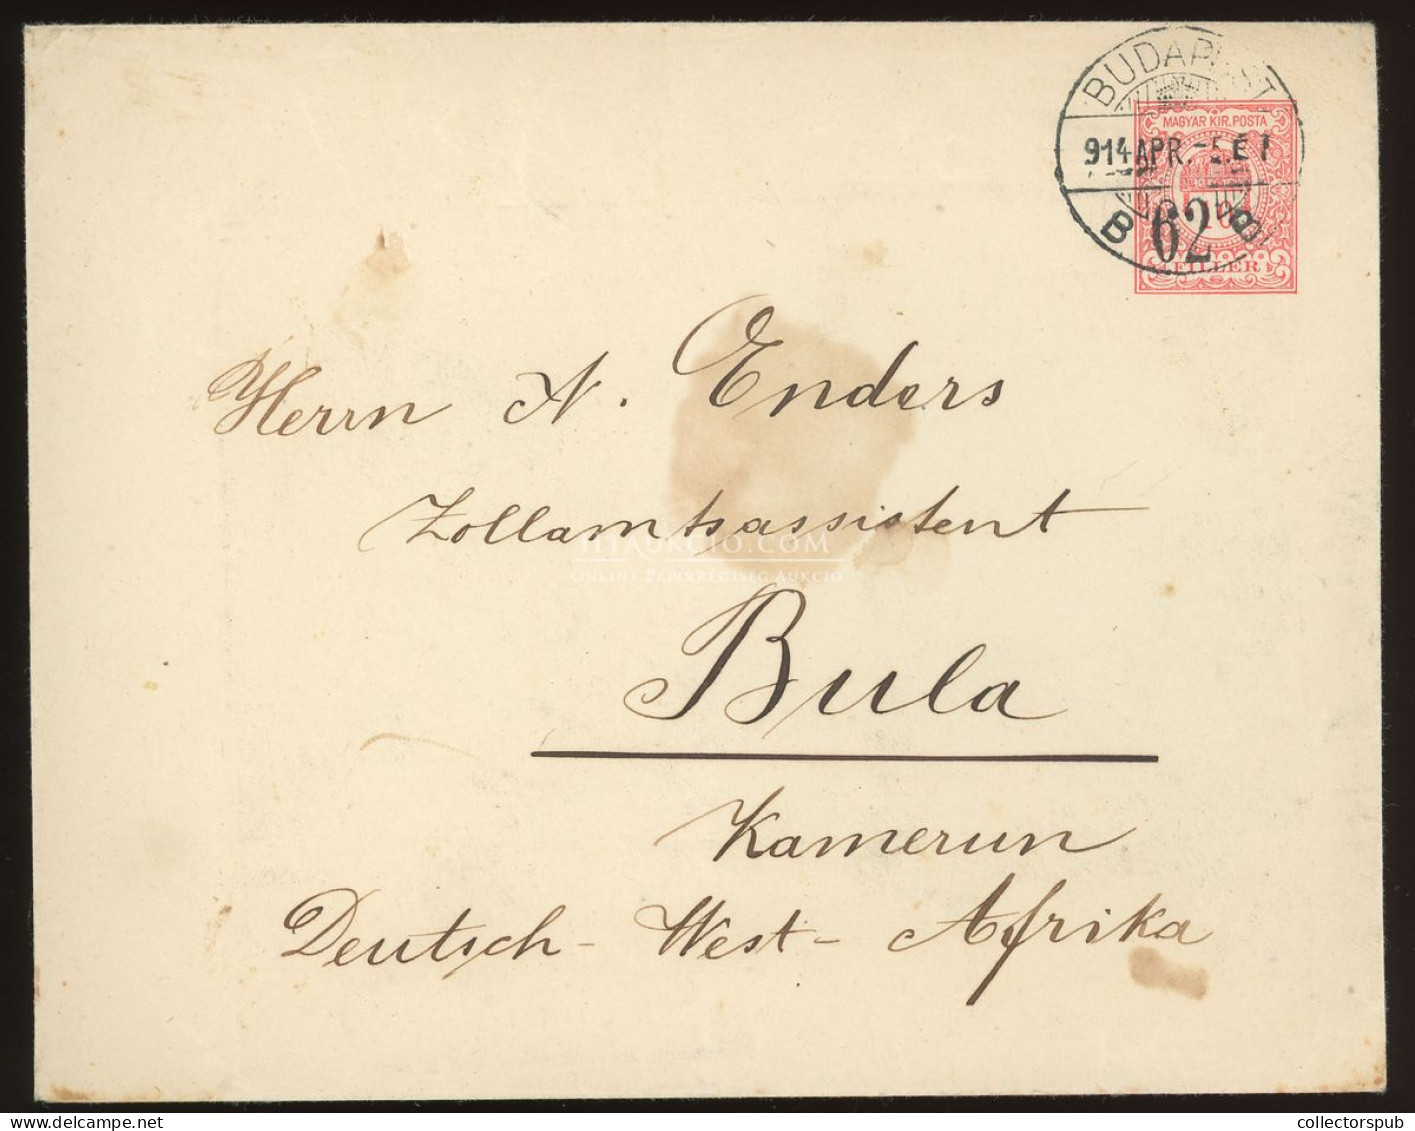 BUDAPEST
914 APR. - 5. É 7
B 62 B
MAGYAR KIR. POSTA
10
FILLÉR
Herrn A. Enders
Zollamtsassistent
HTAUKCIO.COM
ONLINE PAPÍRRÉGISÉG AUKCIÓ
Bula
Kamerun
Deutsch-West-Afrika
collectorspub